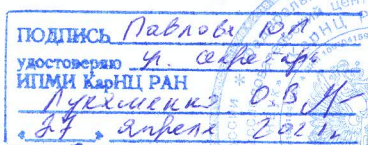 ПОДПИСЬ Павлова Ю.Л
удостоверяю уч. секретарь
ИПМИ КарНЦ РАН
Лукашенко О.В
"27" апреля 2021г.